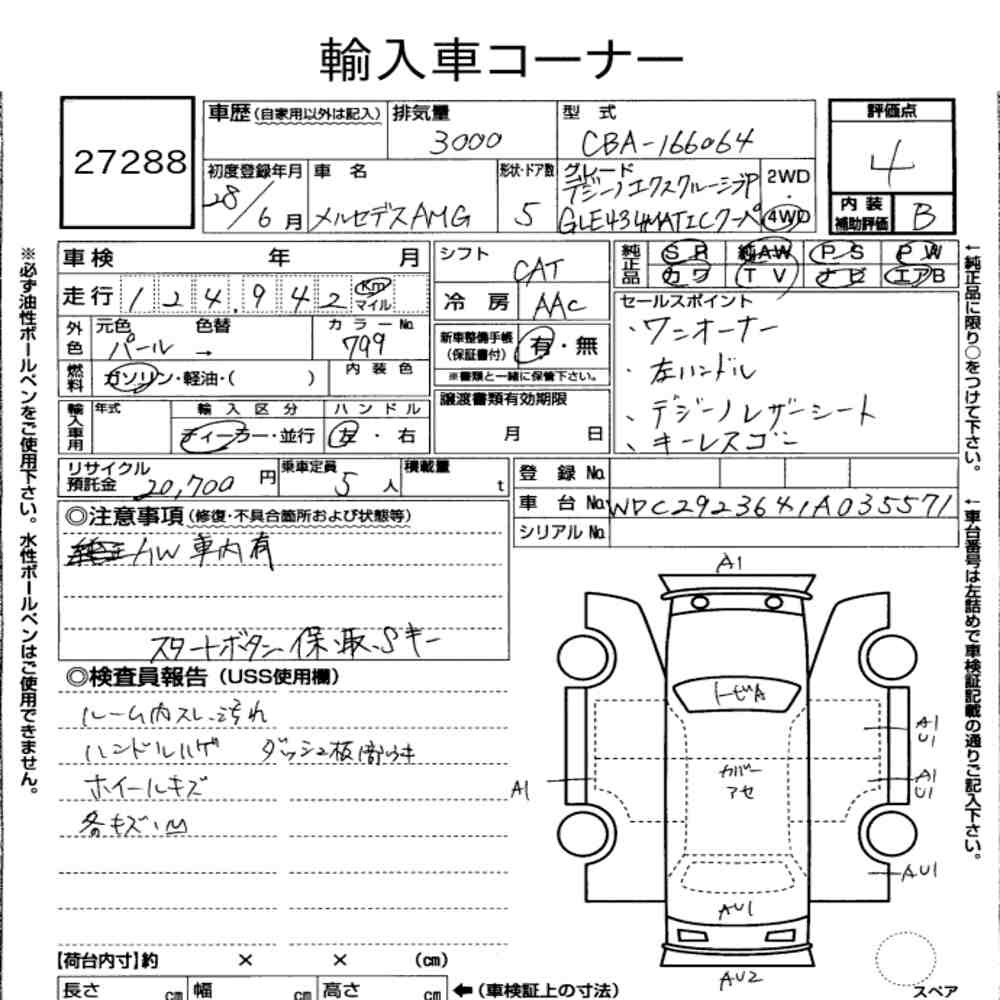 輸入車コーナー
27288
車歴(自家用以外は記入)
排気量
3000
型式
CBA-166064
評価点
4
初度登録年月
28/6月
車名
メルセデスAMG
形状・ドア数
5
グレード
デジーノエクスクルーシブP
GLE434MATICクーペ
2WD
・
4WD
内装
補助評価
B
車検 年 月
走行
124,942
Km
マイル
シフト
CAT
冷房
AAC
純正品
SR 純AW PS PW
カワ TV ナビ エアB
外色
元色 色替
パール →
カラーNo.
799
燃料
ガソリン・軽油・( )
内装色
新車整備手帳
(保証書付)
有・無
※書類と一緒に保管下さい。
セールスポイント
・ワンオーナー
・左ハンドル
・デジーノレザーシート
、キーレスゴー
輸入車用
年式
輸入区分
ディーラー・並行
ハンドル
左・右
譲渡書類有効期限
月 日
リサイクル
預託金
20,700円
乗車定員
5人
積載量
t
登録No.
車台No.
WDC2923641A035571
シリアルNo.
◎注意事項(修復・不具合箇所および状態等)
AW車内有
スタートボタン 保・取、Sキー
◎検査員報告(USS使用欄)
ルーム内スレ、汚れ
ハンドルハゲ
ダッシュ板部浮
ホイールキズ
各キズ、凹
A1
トビA
カバー
アセ
A1
U1
A1
U1
A1
AU1
AU1
AU2
スペア
【荷台内寸】約 × × (cm)
長さ cm 幅 cm 高さ cm
←(車検証上の寸法)
※必ず油性ボールペンをご使用下さい。水性ボールペンはご使用できません。
←純正品に限り○をつけて下さい。
←車台番号は左詰めで車検証記載の通りご記入下さい。